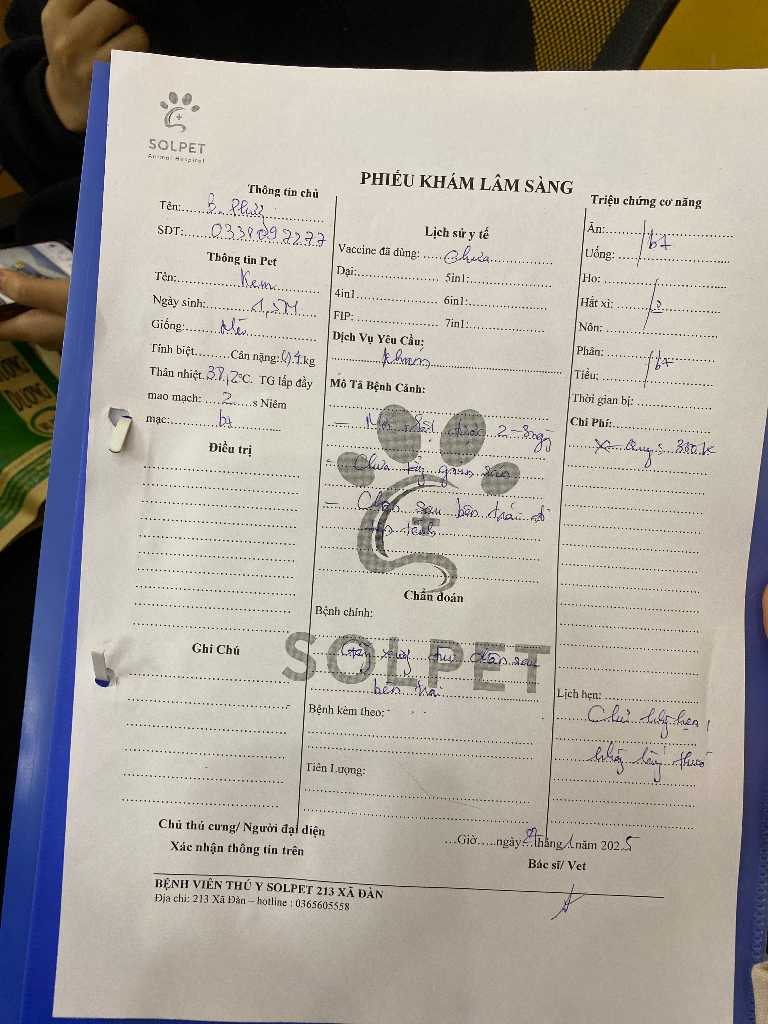 SOLPET
Animal Hospital
PHIẾU KHÁM LÂM SÀNG
Thông tin chủ
Tên: B. Phượng
SĐT:
Thông tin Pet
Tên: Kem
Ngày sinh: 1,5M
Giống: Mèo
Tính biệt.......... Cân nặng: 0,4 kg
Thân nhiệt 38,2°C. TG lấp đầy
mao mạch: 2 s Niêm
mạc: bt
Điều trị
Ghi Chú
Lịch sử y tế
Vaccine đã dùng: chưa
Dại: 5in1:
4in1 6in1:
FIP: 7in1:
Dịch Vụ Yêu Cầu:
khám
Mô Tả Bệnh Cảnh:
- Mới nhặt được 2-3 ngày
- Chưa tẩy giun sán
- Chân sau bên trái
SOLPET
Chẩn đoán
Bệnh chính:
Gãy xương đùi chân sau
bên trái
Bệnh kèm theo:
Tiên Lượng:
Triệu chứng cơ năng
Ăn:
bt
Uống:
Ho:
Hắt xì:
Nôn:
Phân:
bt
Tiểu:
Thời gian bị:
Chi Phí:
X-Quang: 350k
Lịch hẹn:
Chủ không hẹn,
không lấy thuốc
Chủ thú cưng/ Người đại diện
Xác nhận thông tin trên
...Giờ.....ngày tháng 1 năm 2025
Bác sĩ/ Vet
BỆNH VIỆN THÚ Y SOLPET 213 XÃ ĐÀN
Địa chỉ: 213 Xã Đàn – hotline : 0365605558